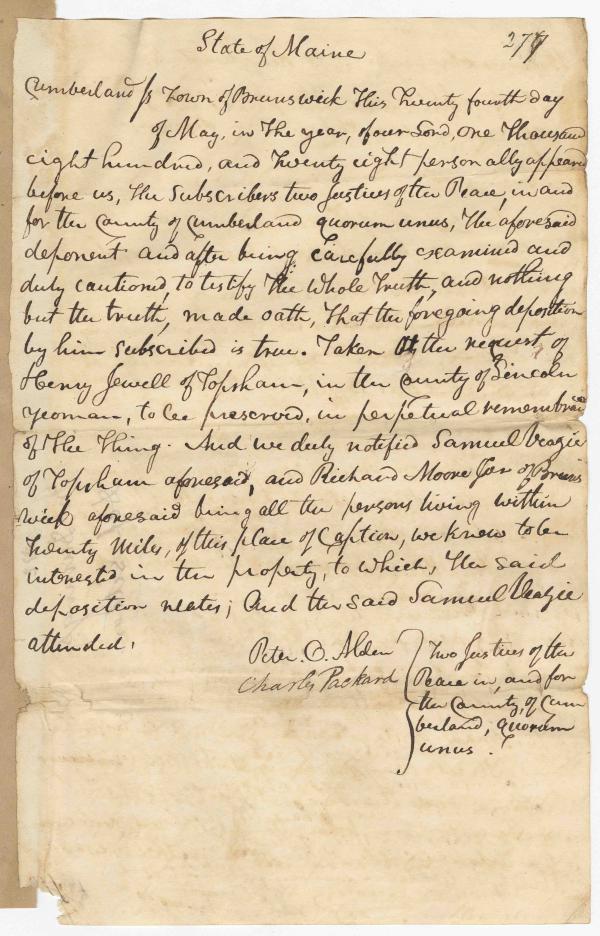 State of Maine
277
Cumberland ss Town of Brunswick This Twenty fourth day
of May, in the year, of our Lord, one Thousand
eight hundred, and Twenty eight personally appeared
before us, the Subscribers two Justices of the Peace, in and
for the County of Cumberland quorum unus, The aforesaid
deponent and after being Carefully examined and
duly cautioned, to testify the Whole Truth, and nothing
but the truth, made oath, That the foregoing deposition
by him Subscribed is true. Taken At the request of
Henry Jewell of Topsham, in the County of Lincoln
yeoman, to be preserved, in perpetual remembrance
of the Thing. And we duly notified Samuel Veazie
of Topsham aforesaid, and Richard Moore Jur of Bruns
wick aforesaid being all the persons living within
Twenty Miles, of this place of Caption, we knew to be
interestd in the property, to which, the said
deposition relates; And the said Samuel Veazie
attended.
Peter. O. Alden
Charles Packard
Two Justices of the
Peace in, and for
the County, of Cum
berland, quorum
unus.